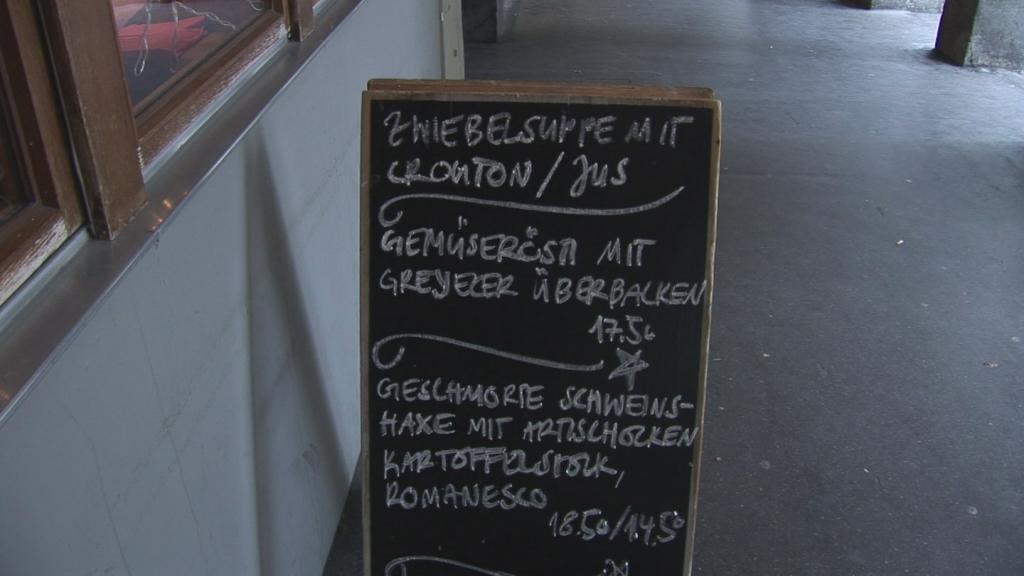 ZWIEBELSUPPE MIT
CROUTON / JUS
GEMÜSERÖSTI MIT
GREYEZER ÜBERBACKEN
17.50
GESCHMORTE SCHWEINS-
HAXE MIT ARTISCHOCKEN
KARTOFFELSTOCK,
ROMANESCO
18.50/14.50